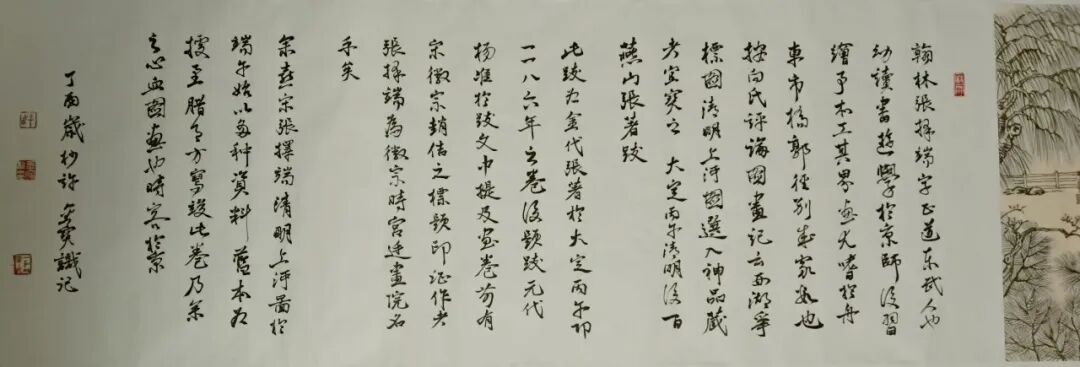 翰林張擇端字正道東武人也
幼讀書遊學於京師後習
繪事本工其界畫尤嗜於舟
車市橋郭徑別成家數也
按向氏評論圖畫記云西湖爭
標圖清明上河圖選入神品藏
者宜寶之 大定丙午清明後一日
燕山張著跋
此跋为金代張著於大定丙午即
一一八六年之卷後題跋元代
楊准於跋文中提及画卷前有
宋徽宗趙佶之標題印证作者
張擇端為徽宗時宮廷畫院名
手矣
余喜宋張擇端清明上河圖於
端午始以多種資料 藍本为
據至腊月方寫竣此卷乃余
之心血圖画也時客於京
丁酉歲杪許 識記